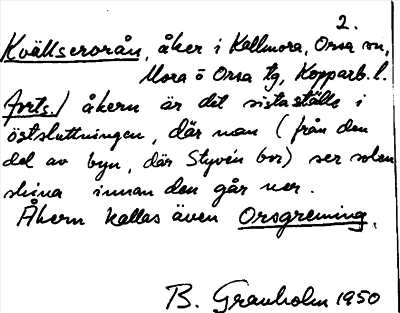 2.
Kvällserorån, åker i Kallmora, Orsa sn,
Mora o Orsa tg, Kopparb. l.
forts.) åkern är det sista ställe i
östsluttningen, där man (från den
del av byn, där Styvén bor) ser solen
skina innan den går ner.
Åkern kallas även Orsgreining.
B. Granholm 1950